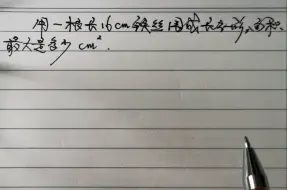 用一根长16cm铁丝围成长方形,面积
最大是多少 cm².